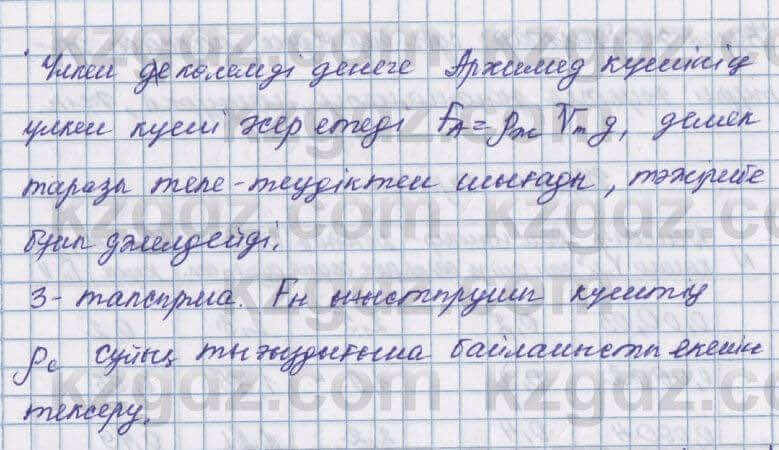 Үлкен де көлемді денеге Архимед күшінің
үлкен күші әсер етеді Fₐ = ρж Vт g, демек
таразы тепе-теңдіктен шығады, тәжірибе
бұны дәлелдейді.
3-тапсырма. Fн ығыстырушы күштің
ρс сұйық тығыздығына байланысты екенін
тексеру.
kzgdz.com